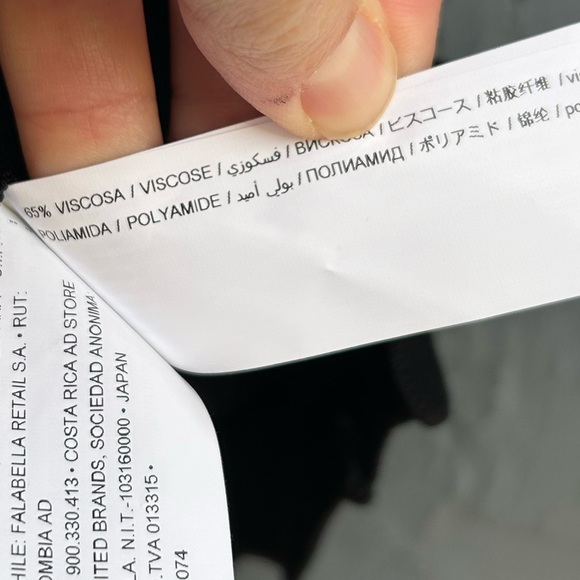 65% VISCOSA / VISCOSE / فسكوزي / ВИСКОЗА / ビスコース / 粘胶纤维 /
POLIAMIDA / POLYAMIDE / بولي أميد / ПОЛИАМИД / ポリアミド / 锦纶 /
HILE: FALABELLA RETAIL S.A. • RUT:
OMBIA AD
900.330.413 • COSTA RICA AD STORE
ITED BRANDS, SOCIEDAD ANONIMA
LA. N.I.T.-103160000 • JAPAN
.TVA 013315 •
074